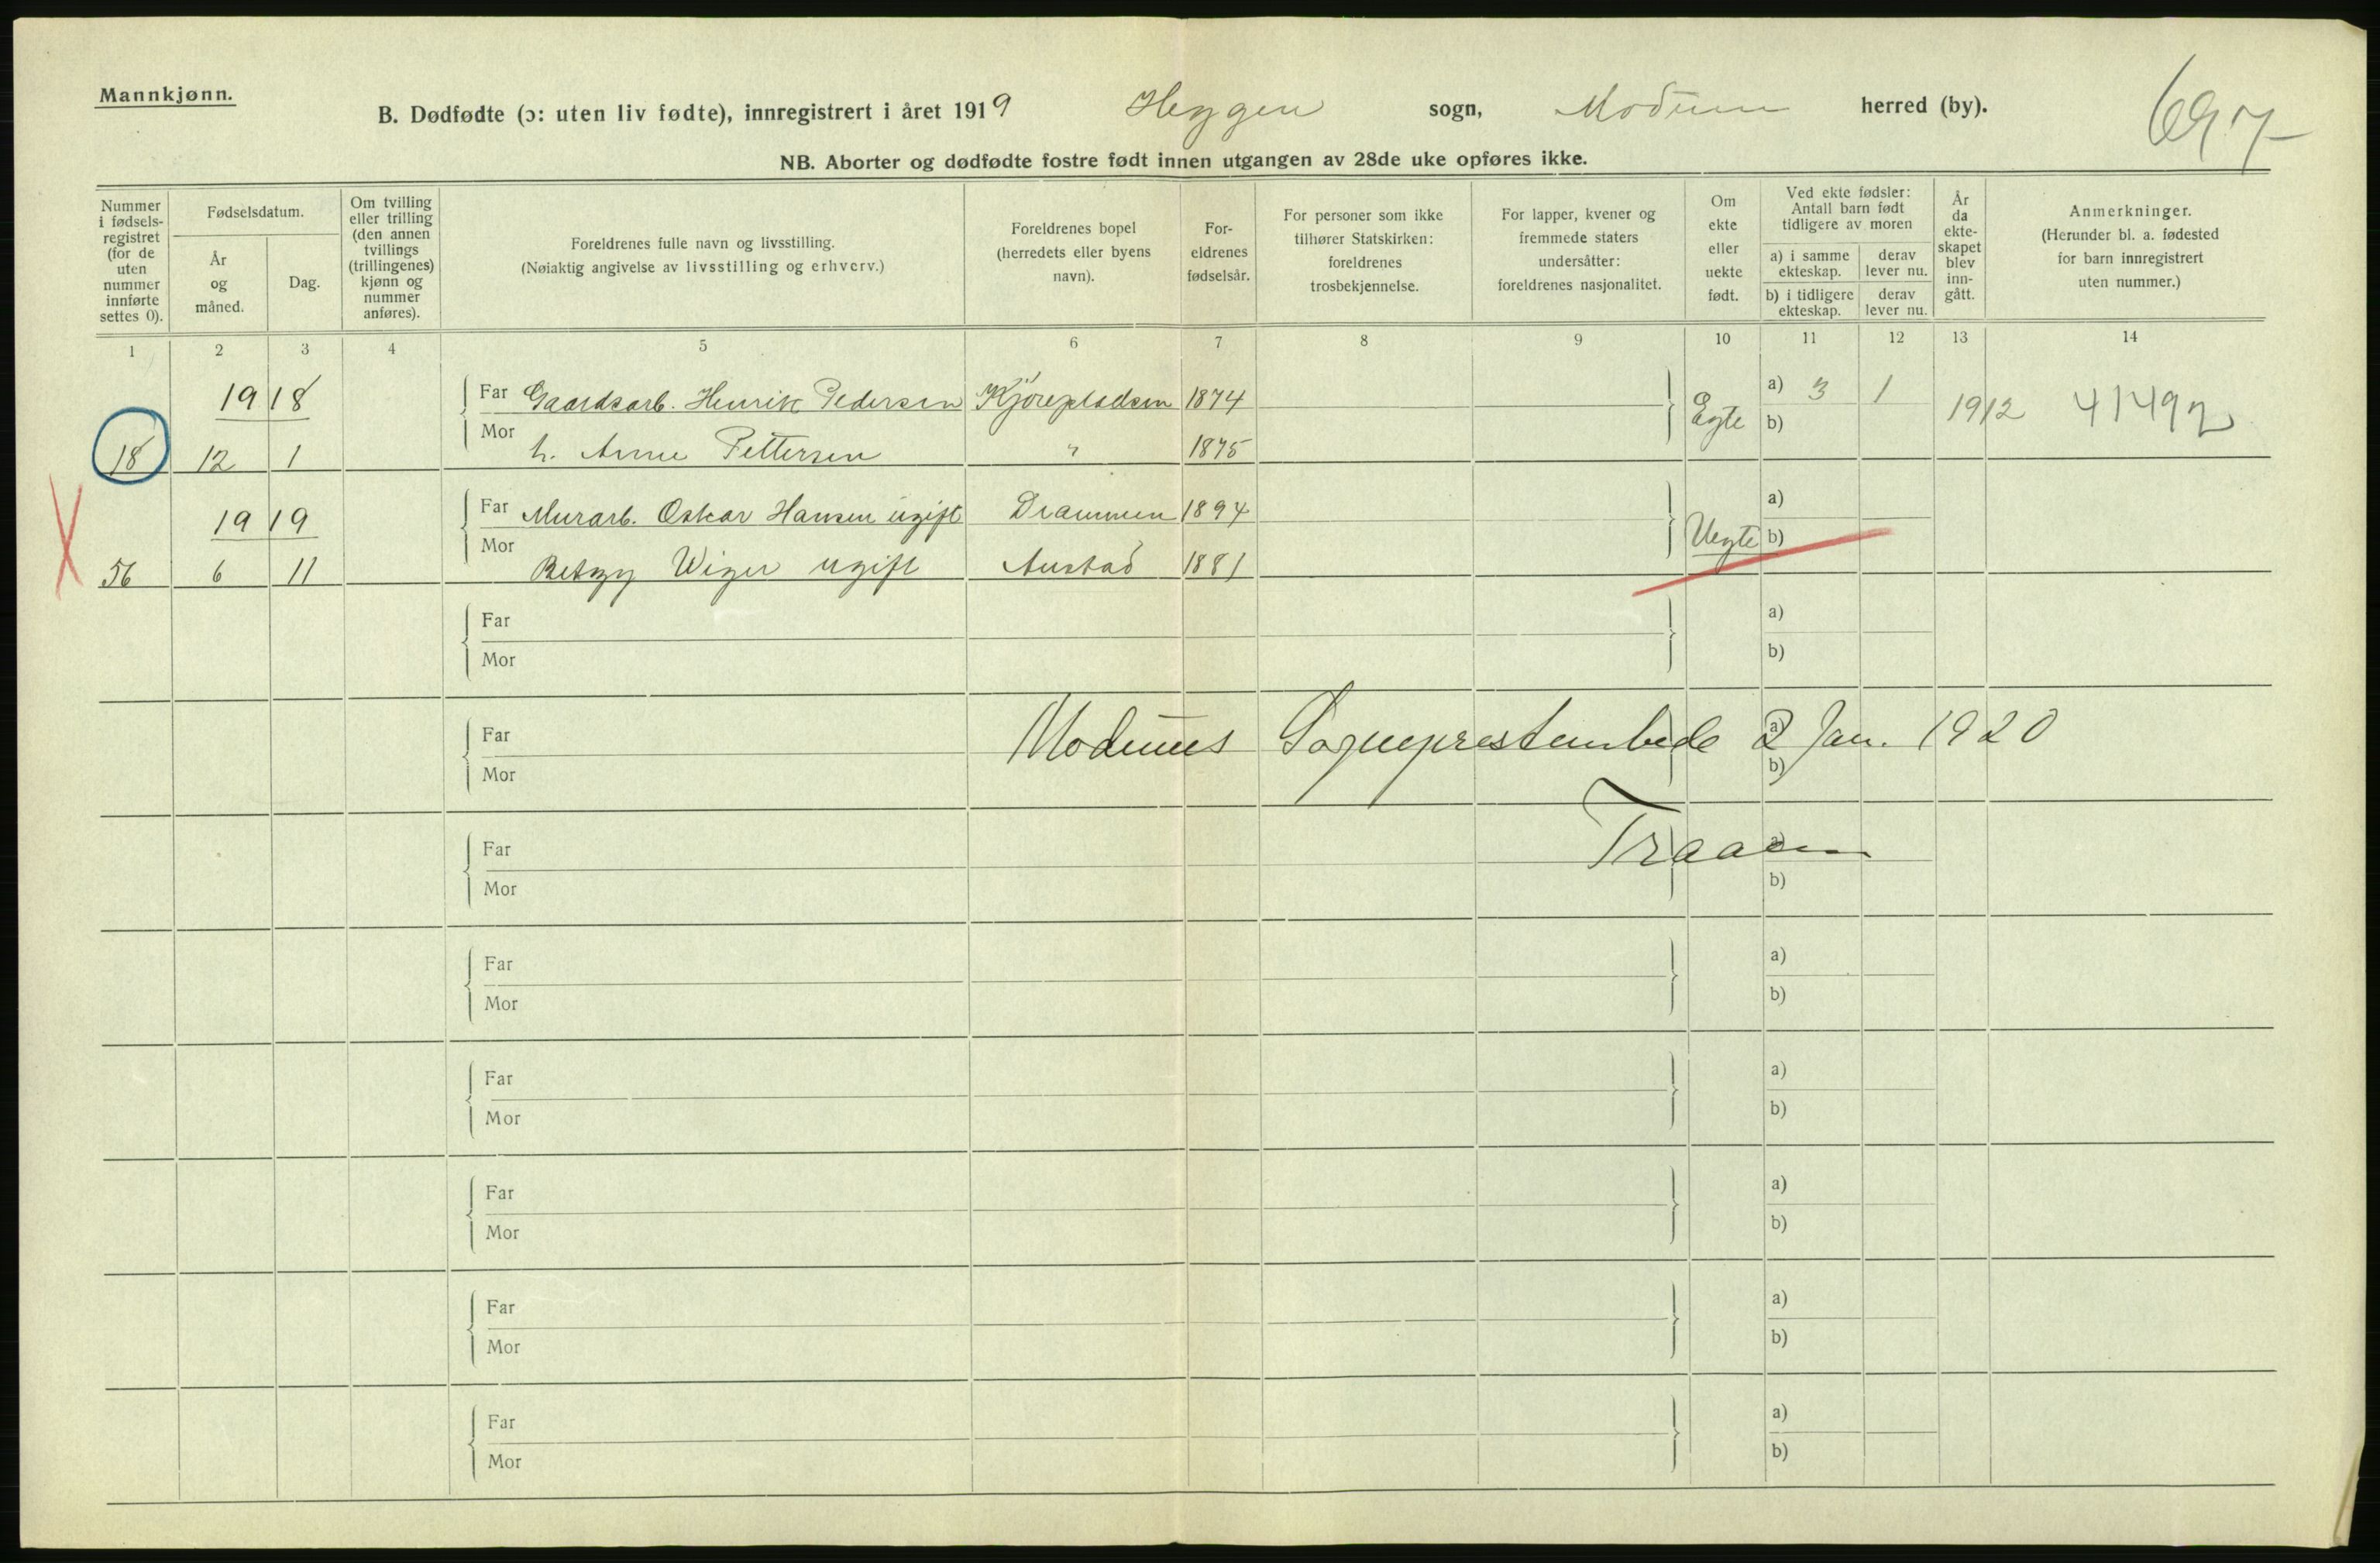 Mannkjønn.
B. Dødfødte (ɔ: uten liv fødte), innregistrert i året 1919 Heggen sogn, Modum herred (by).
697
NB. Aborter og dødfødte fostre født innen utgangen av 28de uke opføres ikke.
Nummer i fødsels-registret (for de uten nummer innførte settes 0).
Fødselsdatum.
År og måned.
Dag.
Om tvilling eller trilling (den annen tvillings (trillingenes) kjønn og nummer anføres).
Foreldrenes fulle navn og livsstilling.
(Nøiaktig angivelse av livsstilling og erhverv.)
Foreldrenes bopel (herredets eller byens navn).
For-eldrenes fødselsår.
For personer som ikke tilhører Statskirken: foreldrenes trosbekjennelse.
For lapper, kvener og fremmede staters undersåtter: foreldrenes nasjonalitet.
Om ekte eller uekte født.
Ved ekte fødsler: Antall barn født tidligere av moren
a) i samme ekteskap.
derav lever nu.
b) i tidligere ekteskap.
derav lever nu.
År da ekte-skapet blev inn-gått.
Anmerkninger.
(Herunder bl. a. fødested for barn innregistrert uten nummer.)
1 2 3 4 5 6 7 8 9 10 11 12 13 14
1918
Far Gaardsarb. Henrik Pedersen 1874 Egte a) 3 1 1912 41492
18 12 1 Mor h. Anne Pettersen " 1875 b)
1919
Far Murarb. Oskar Hansen ugift Drammen 1894 Uegte a)
56 6 11 Mor Betzy ugift Austad 1881 b)
Far a)
Mor b)
Far Modums Sogneprestembede 2 Jan. 1920 a)
Mor b)
Far Traaen a)
Mor b)
Far a)
Mor b)
Far a)
Mor b)
Far a)
Mor b)
Far a)
Mor b)
Far a)
Mor b)